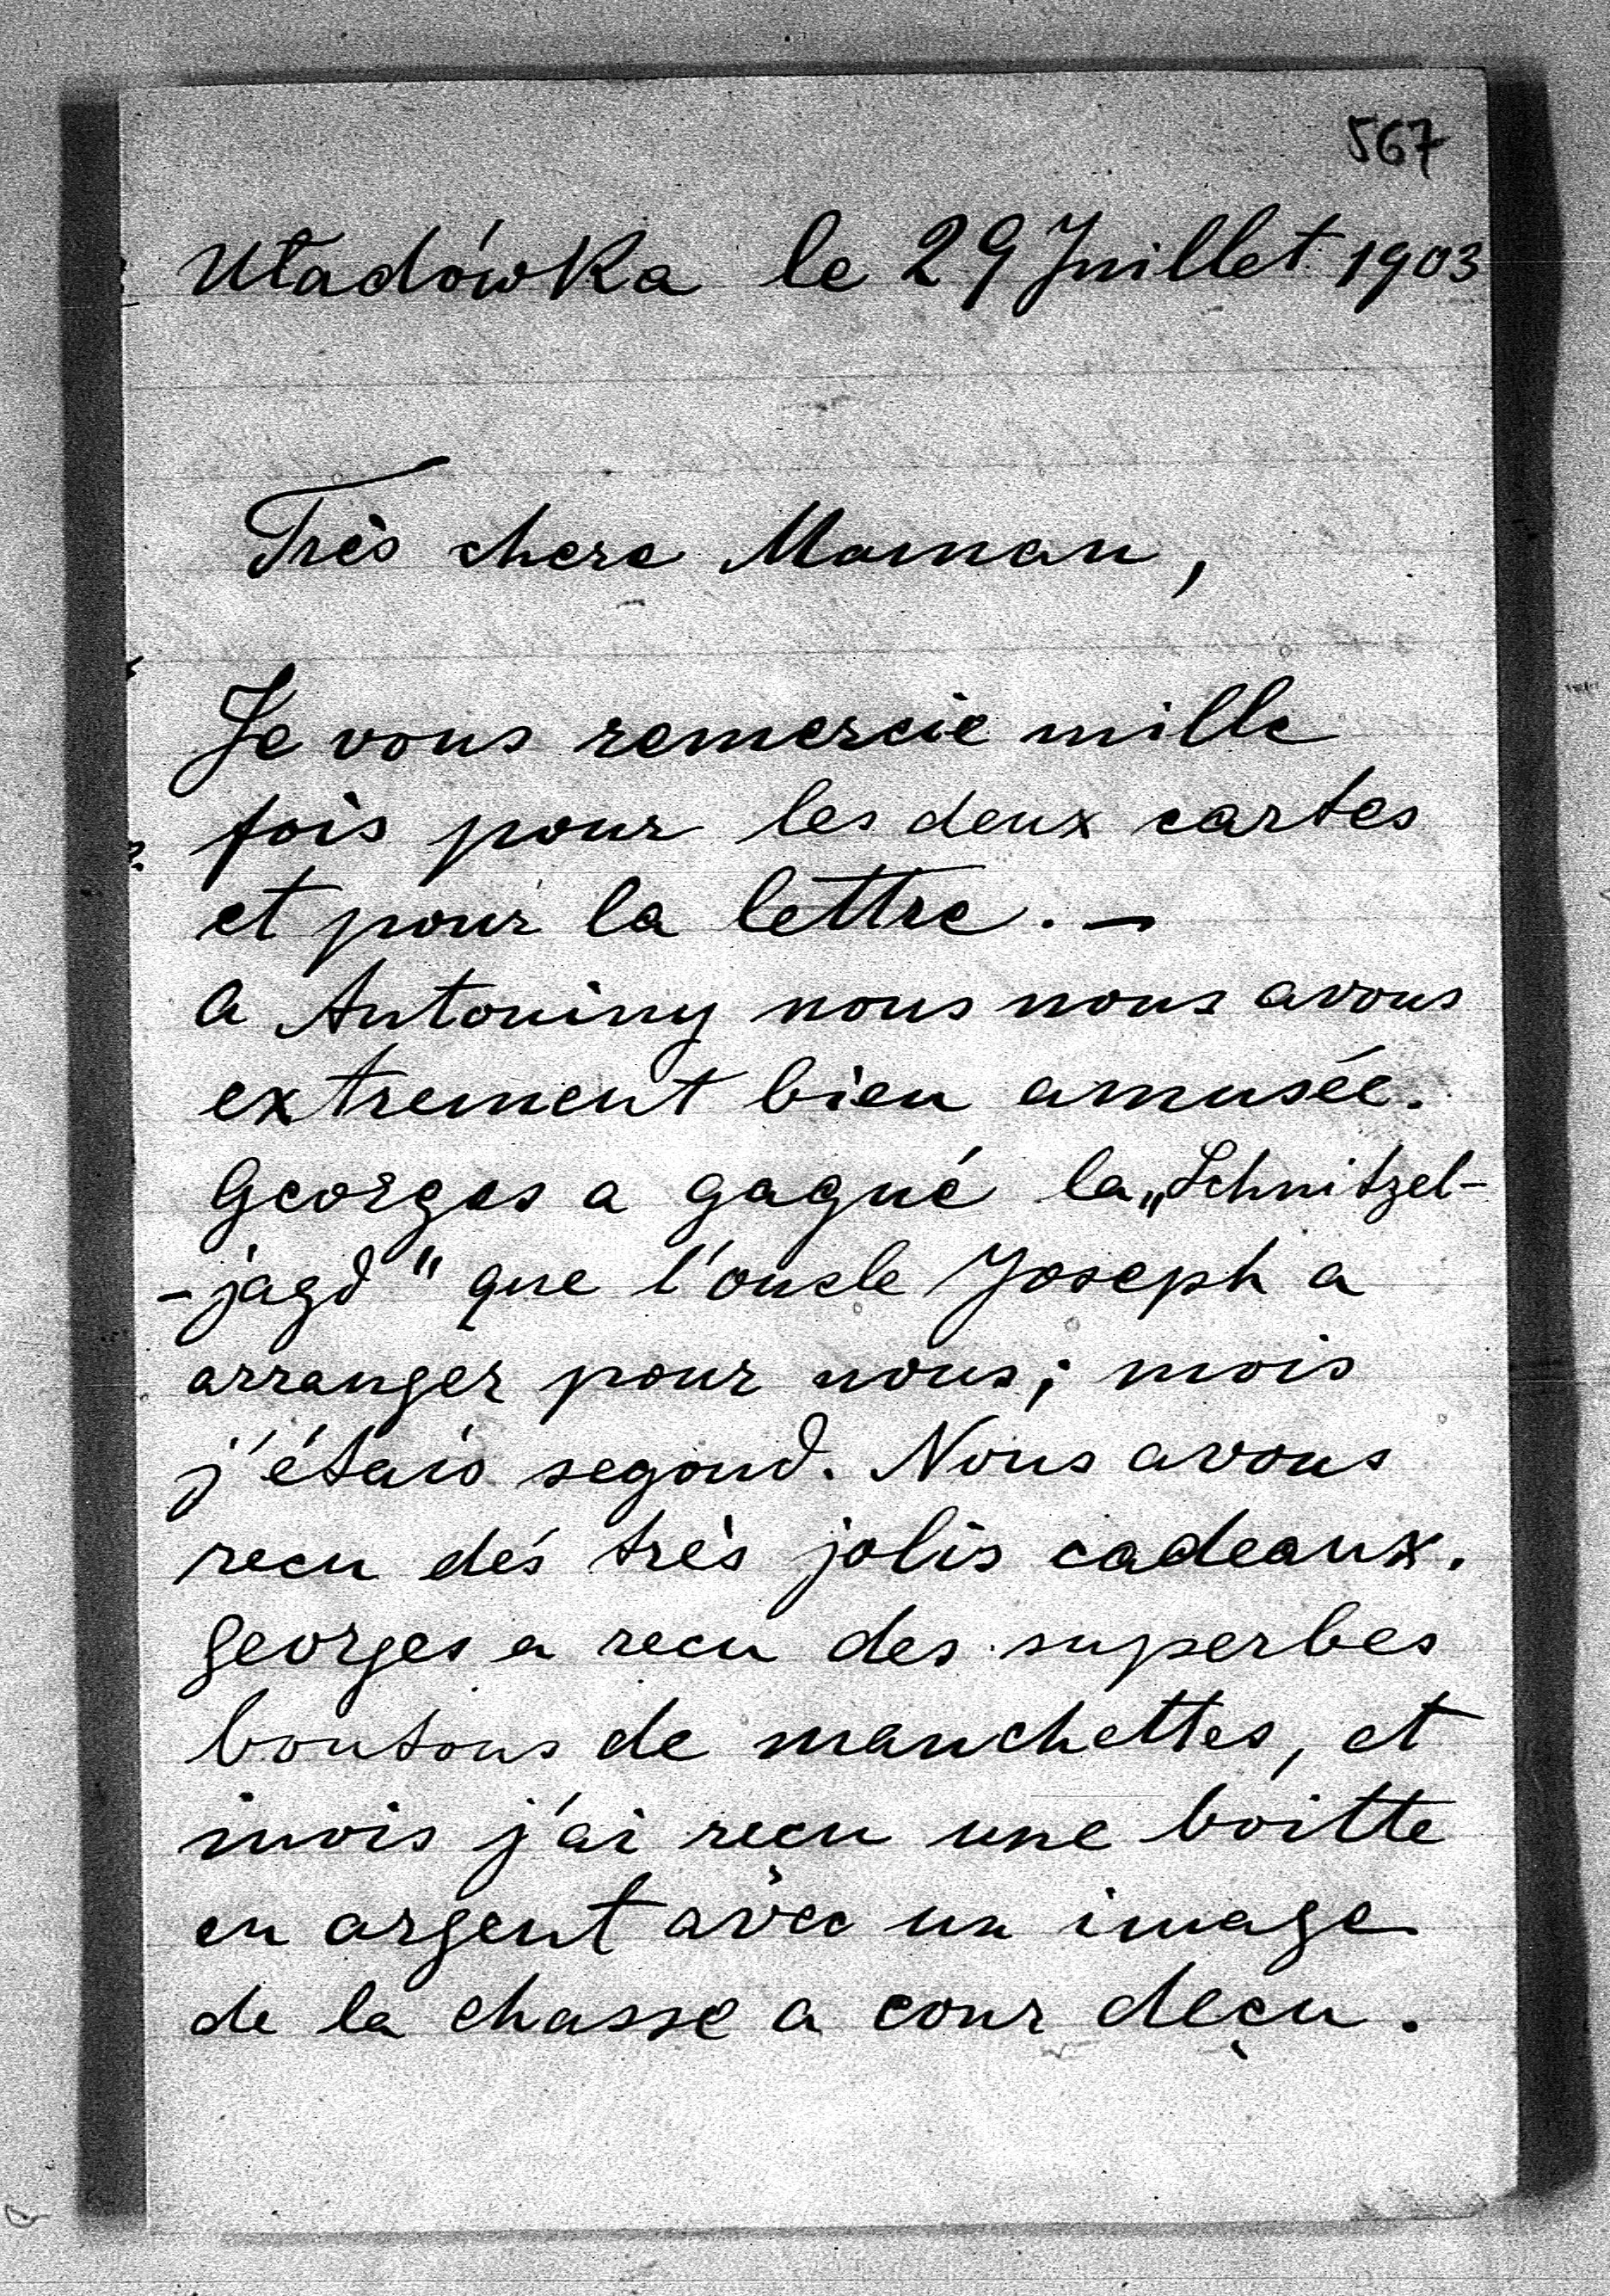 567
Uładówka le 29 Juillet 1903
Très chere Maman,
Je vous remercie mille
fois pour les deux cartes
et pour la lettre. —
A Antoniny nous nous avons
extrement bien amusée.
Georges a gagné la „Schnitzel-
-jagd" que l'oncle Joseph a
arranger pour nous; mois
j'étais segond. Nous avons
recu dés très jolis cadeaux.
Georges a recu des superbes
boutons de manchettes, et
mois j'ai recu une boitte
en argent avec un image
de la chasse a cour deçu.